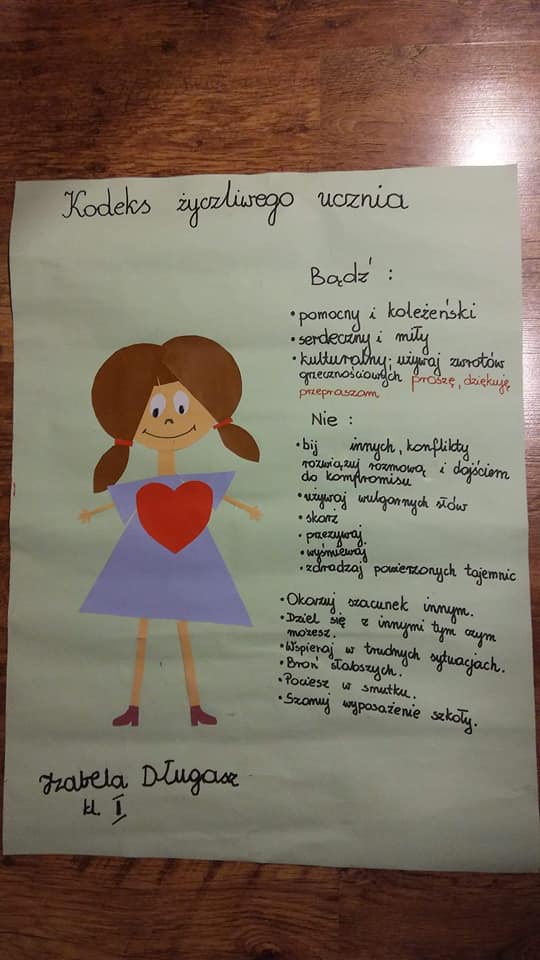 Kodeks życzliwego ucznia
Bądź :
• pomocny i koleżeński
• serdeczny i miły
• kulturalny; używaj zwrotów
grzecznościowych proszę, dziękuję
przepraszam
Nie :
• bij innych, konflikty
rozwiązuj rozmową i dojściem
do kompromisu
• używaj wulgarnych słów
• skarż
• przezywaj
• wyśmiewaj
• zdradzaj powierzonych tajemnic
• Okazuj szacunek innym.
• Dziel się z innymi tym czym
możesz.
• Wspieraj w trudnych sytuacjach.
• Broń słabszych.
• Pociesz w smutku.
• Szanuj wyposażenie szkoły.
Izabela Długasz
kl. I